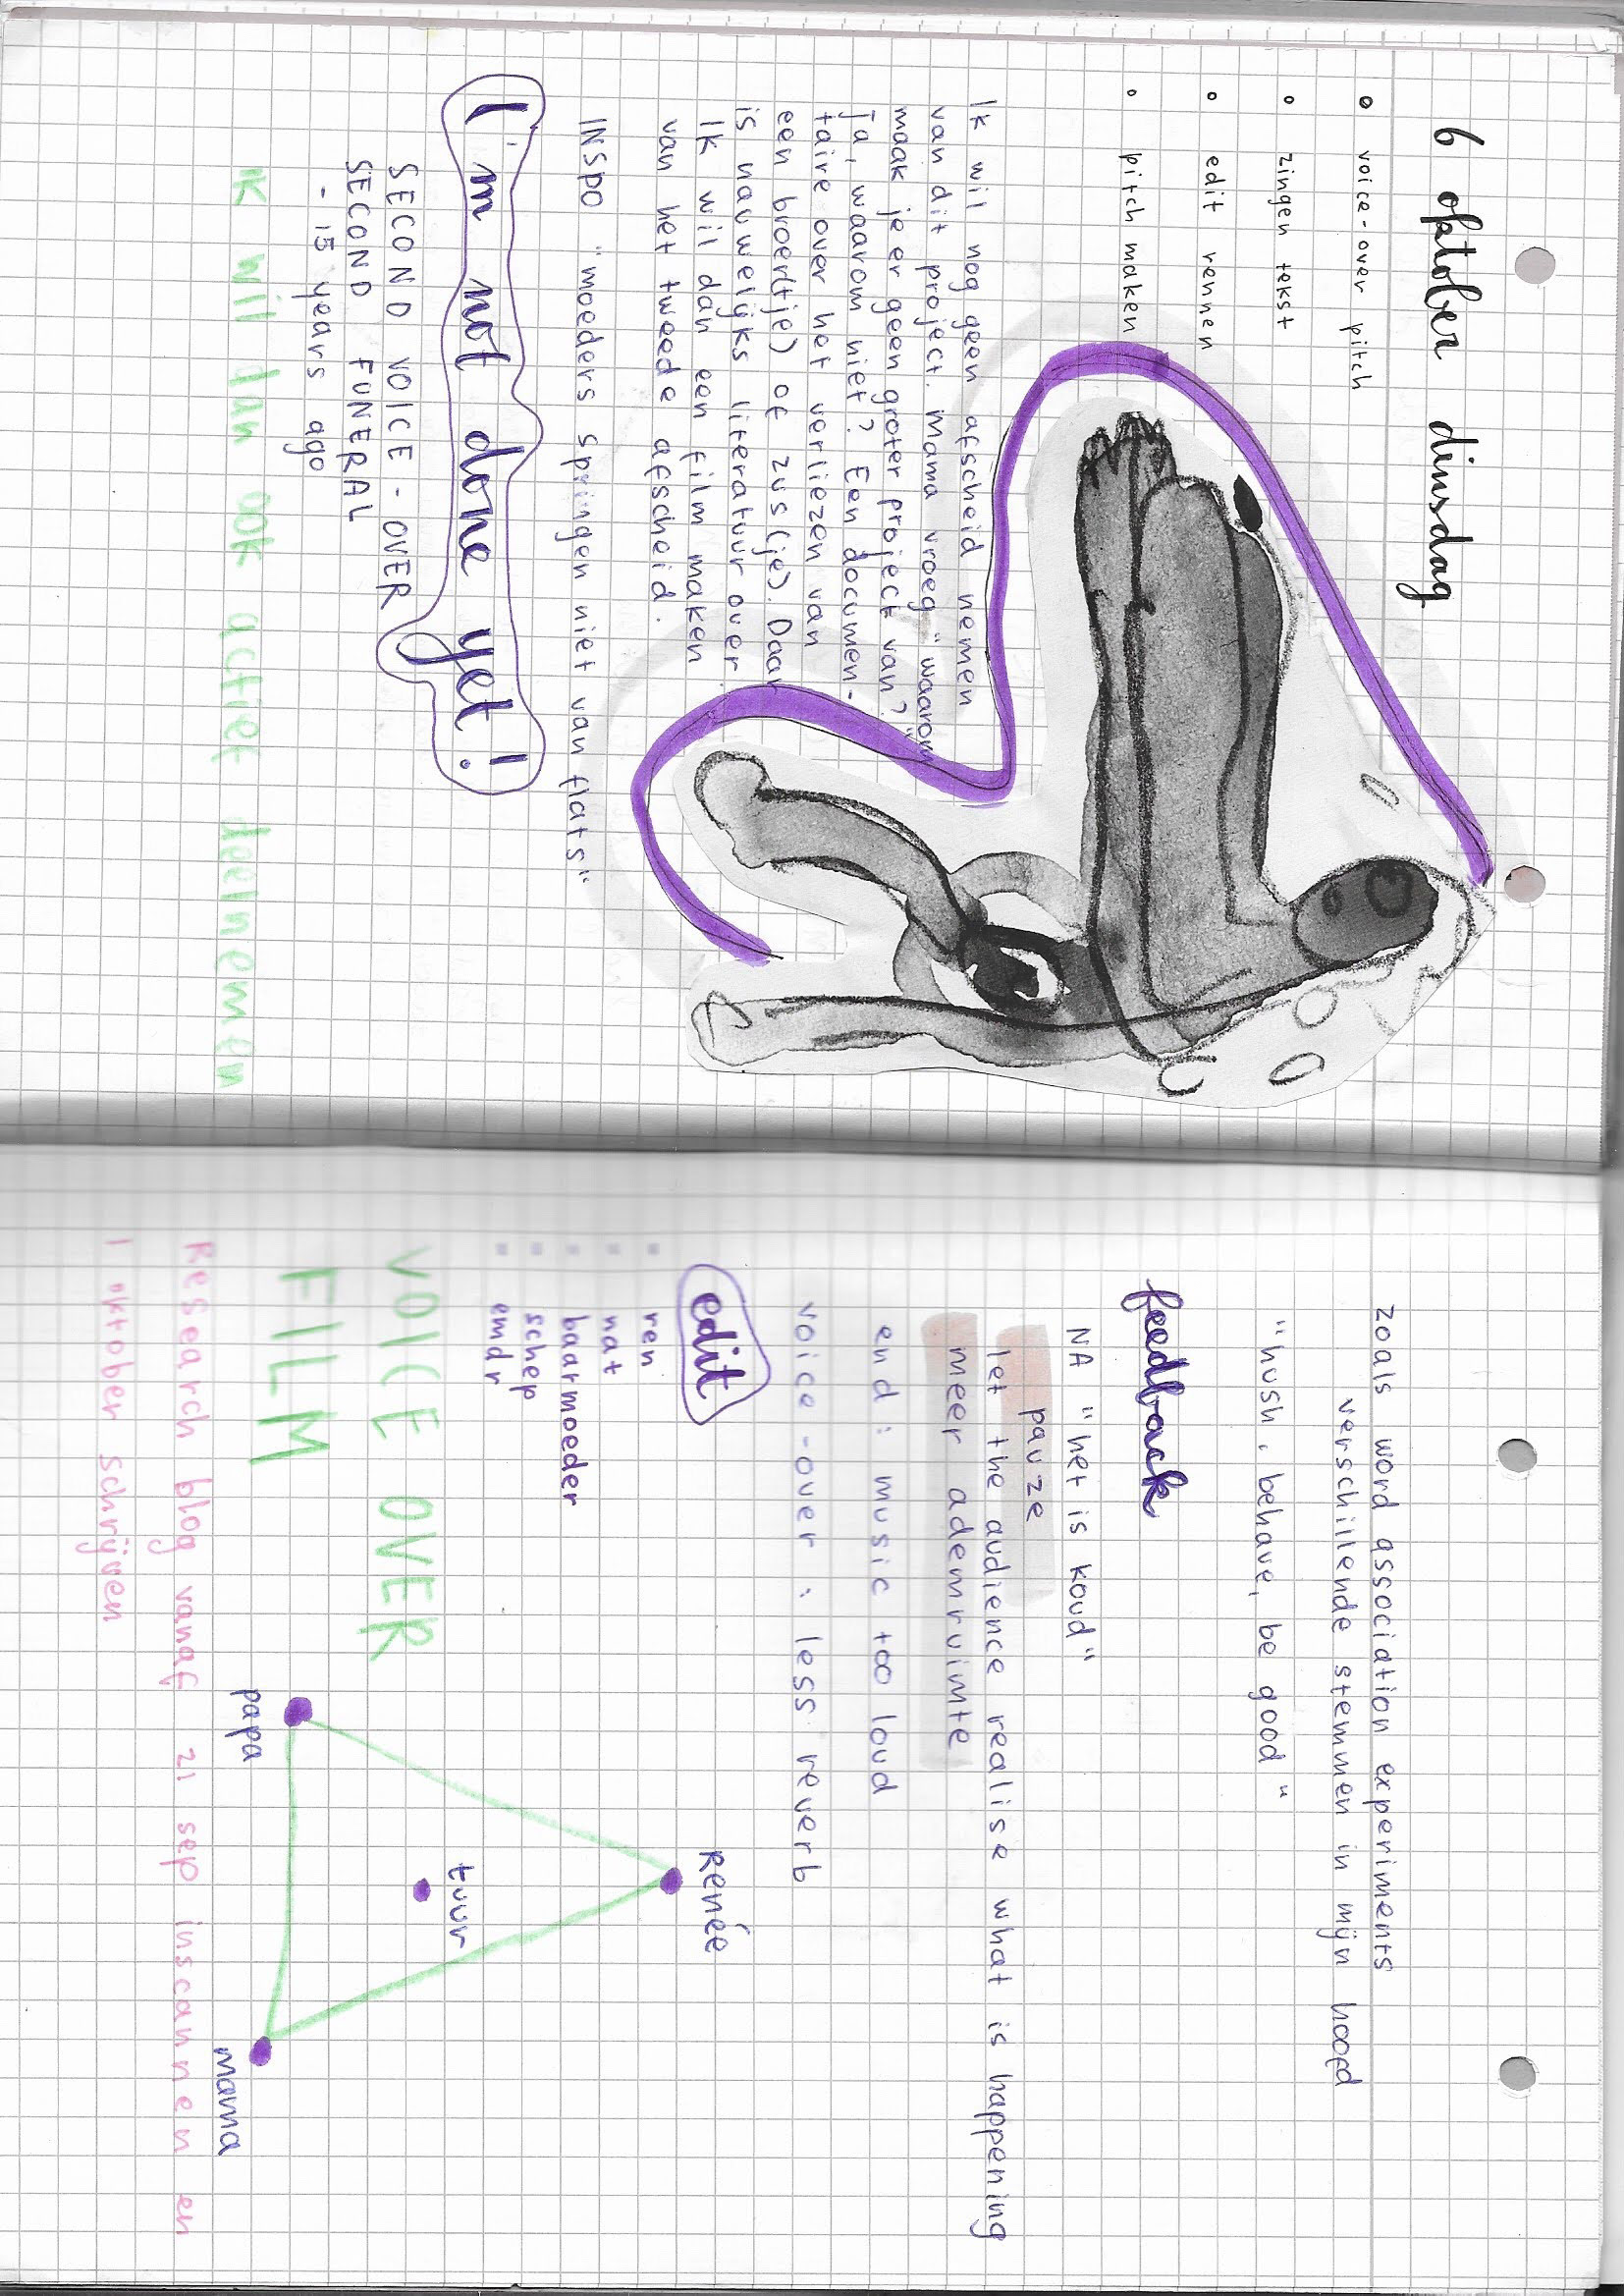 6 oktober dinsdag
• voice-over pitch
• zingen tekst
• edit rennen
• pitch maken
Ik wil nog geen afscheid nemen
van dit project. Mama vroeg "waarom
maak je er geen groter project van?"
Ja, waarom niet? Een documen-
taire over het verliezen van
een broer(tje) of zus(je). Daar
is nauwelijks literatuur over.
Ik wil dan een film maken
van het tweede afscheid.
INSPO "moeders springen niet van flats"
I'm not done yet!
SECOND VOICE-OVER
SECOND FUNERAL
- 15 years ago
IK wil dan ook actief deelnemen
zoals word association experiments
verschillende stemmen in mijn hoofd
"hush, behave, be good"
feedback
NA "het is koud"
pauze
let the audience realise what is happening
meer ademruimte
end: music too loud
voice-over: less reverb
edit
ren
nat
baarmoeder
schep
emdr
VOICE OVER
FILM
Renée
tuur
papa
mama
Research blog vanaf 21 sep inscannen en
1 oktober schrijven